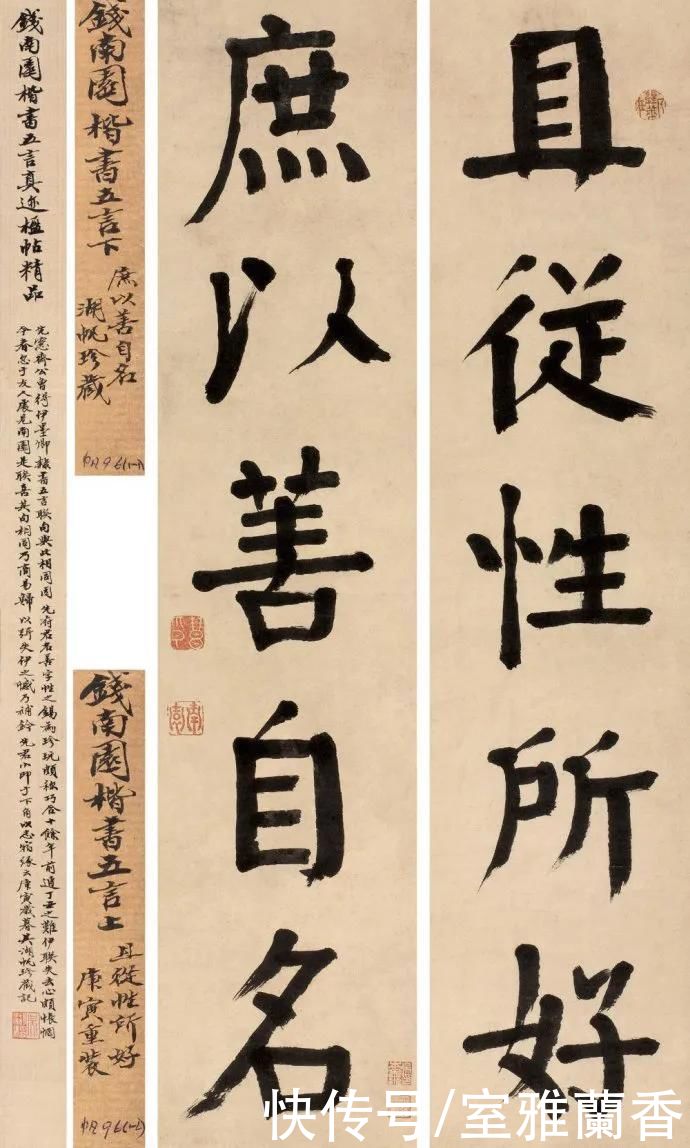 且從性所好
庶以善自名
錢南園楷書五言下
庶以善自名
湖帆珍藏
錢南園楷書五言上
且從性所好
庚寅重裝
錢南園楷書五言真迹楹帖精品
先愙齋公曾得伊墨卿隸書五言聯句與此相同因先府君名善字性之錫爲珍玩頗稱巧合十餘年前遭丁丑之難伊聯失去心頗悵惘
今春忽于友人處見南園是聯喜其句相同乃商易歸以符失伊之憾乃補鈐先君小印于下角以志緣云庚寅歲暮吳湖帆珍藏記
快传号/室雅蘭香